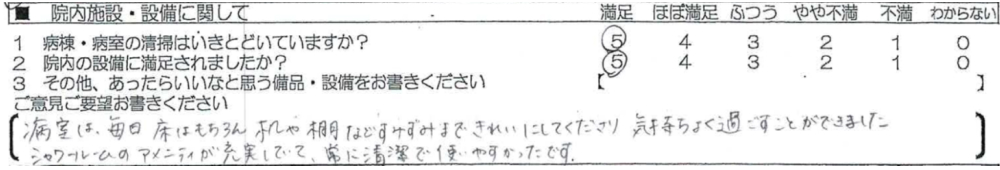 ■ 院内施設・設備に関して 満足 ほぼ満足 ふつう やや不満 不満 わからない
1 病棟・病室の清掃はいきとどいていますか? 5 4 3 2 1 0
2 院内の設備に満足されましたか? 5 4 3 2 1 0
3 その他、あったらいいなと思う備品・設備をお書きください 【 】
ご意見ご要望お書きください
病室は、毎日 床はもちろん 机や棚などすみずみまできれいにしてくださり 気持ちよく過ごすことができました
シャワールームのアメニティが充実していて、常に清潔で使いやすかったです。